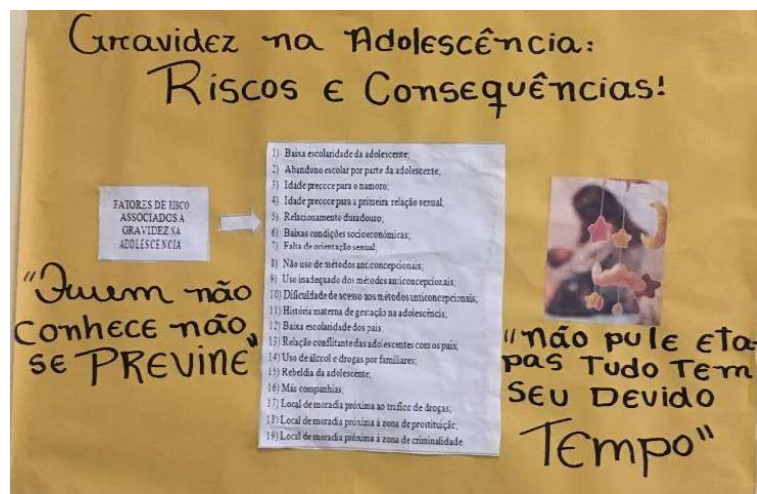 Gravidez na Adolescência:
Riscos e Consequências!
FATORES DE RISCO
ASSOCIADOS A
GRAVIDEZ NA
ADOLESCENCIA
1) Baixa escolaridade da adolescente;
2) Abandono escolar por parte da adolescente;
3) Idade precoce para o namoro;
4) Idade precoce para a primeira relação sexual;
5) Relacionamento duradouro;
6) Baixas condições socioeconômicas;
7) Falta de orientação sexual;
8) Não uso de métodos anticoncepcionais;
9) Uso inadequado dos métodos anticoncepcionais;
10) Dificuldade de acesso aos métodos anticoncepcionais;
11) História materna de gestação na adolescência;
12) Baixa escolaridade dos pais
13) Relação conflitante das adolescentes com os pais;
14) Uso de álcool e drogas por familiares;
15) Rebeldia da adolescente;
16) Más companhias;
17) Local de moradia próxima ao tráfico de drogas;
18) Local de moradia próxima à zona de prostituição;
19) Local de moradia próxima à zona de criminalidade
"Quem não
conhece não
se PREVINE"
"não pule eta-
pas Tudo Tem
seu Devido
Tempo"